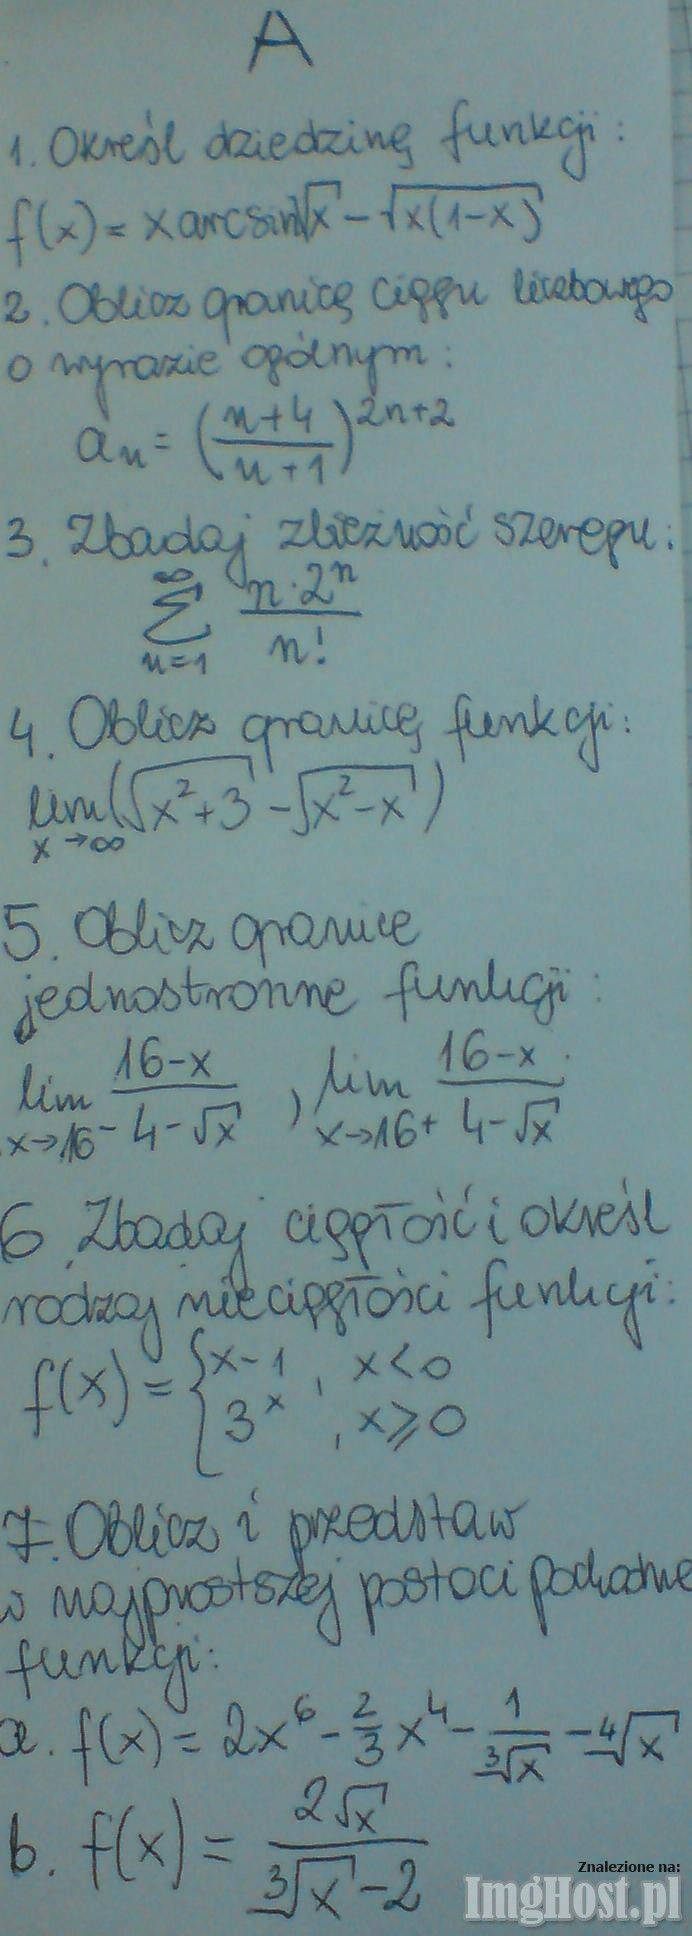 A
1. Określ dziedzinę funkcji:
f(x) = x arcsin√x - √(x(1-x))
2. Oblicz granicę ciągu liczbowego
o wyrazie ogólnym:
aₙ = ((n+4)/(n+1))^(2n+2)
3. Zbadaj zbieżność szeregu:
∑_{n=1}^{∞} (n·2ⁿ)/n!
4. Oblicz granicę funkcji:
lim_{x→∞} (√(x²+3) - √(x²-x))
5. Oblicz granice
jednostronne funkcji:
lim_{x→16⁻} (16-x)/(4-√x) , lim_{x→16⁺} (16-x)/(4-√x)
6. Zbadaj ciągłość i określ
rodzaj nieciągłości funkcji:
f(x) = { x-1 , x<0
3ˣ , x⩾0
7. Oblicz i przedstaw
w najprostszej postaci pochodne
funkcji:
a. f(x) = 2x⁶ - 2/3 x⁴ - 1/∛x - ∜x
b. f(x) = 2√x / (∛x - 2)
Znalezione na:
ImgHost.pl